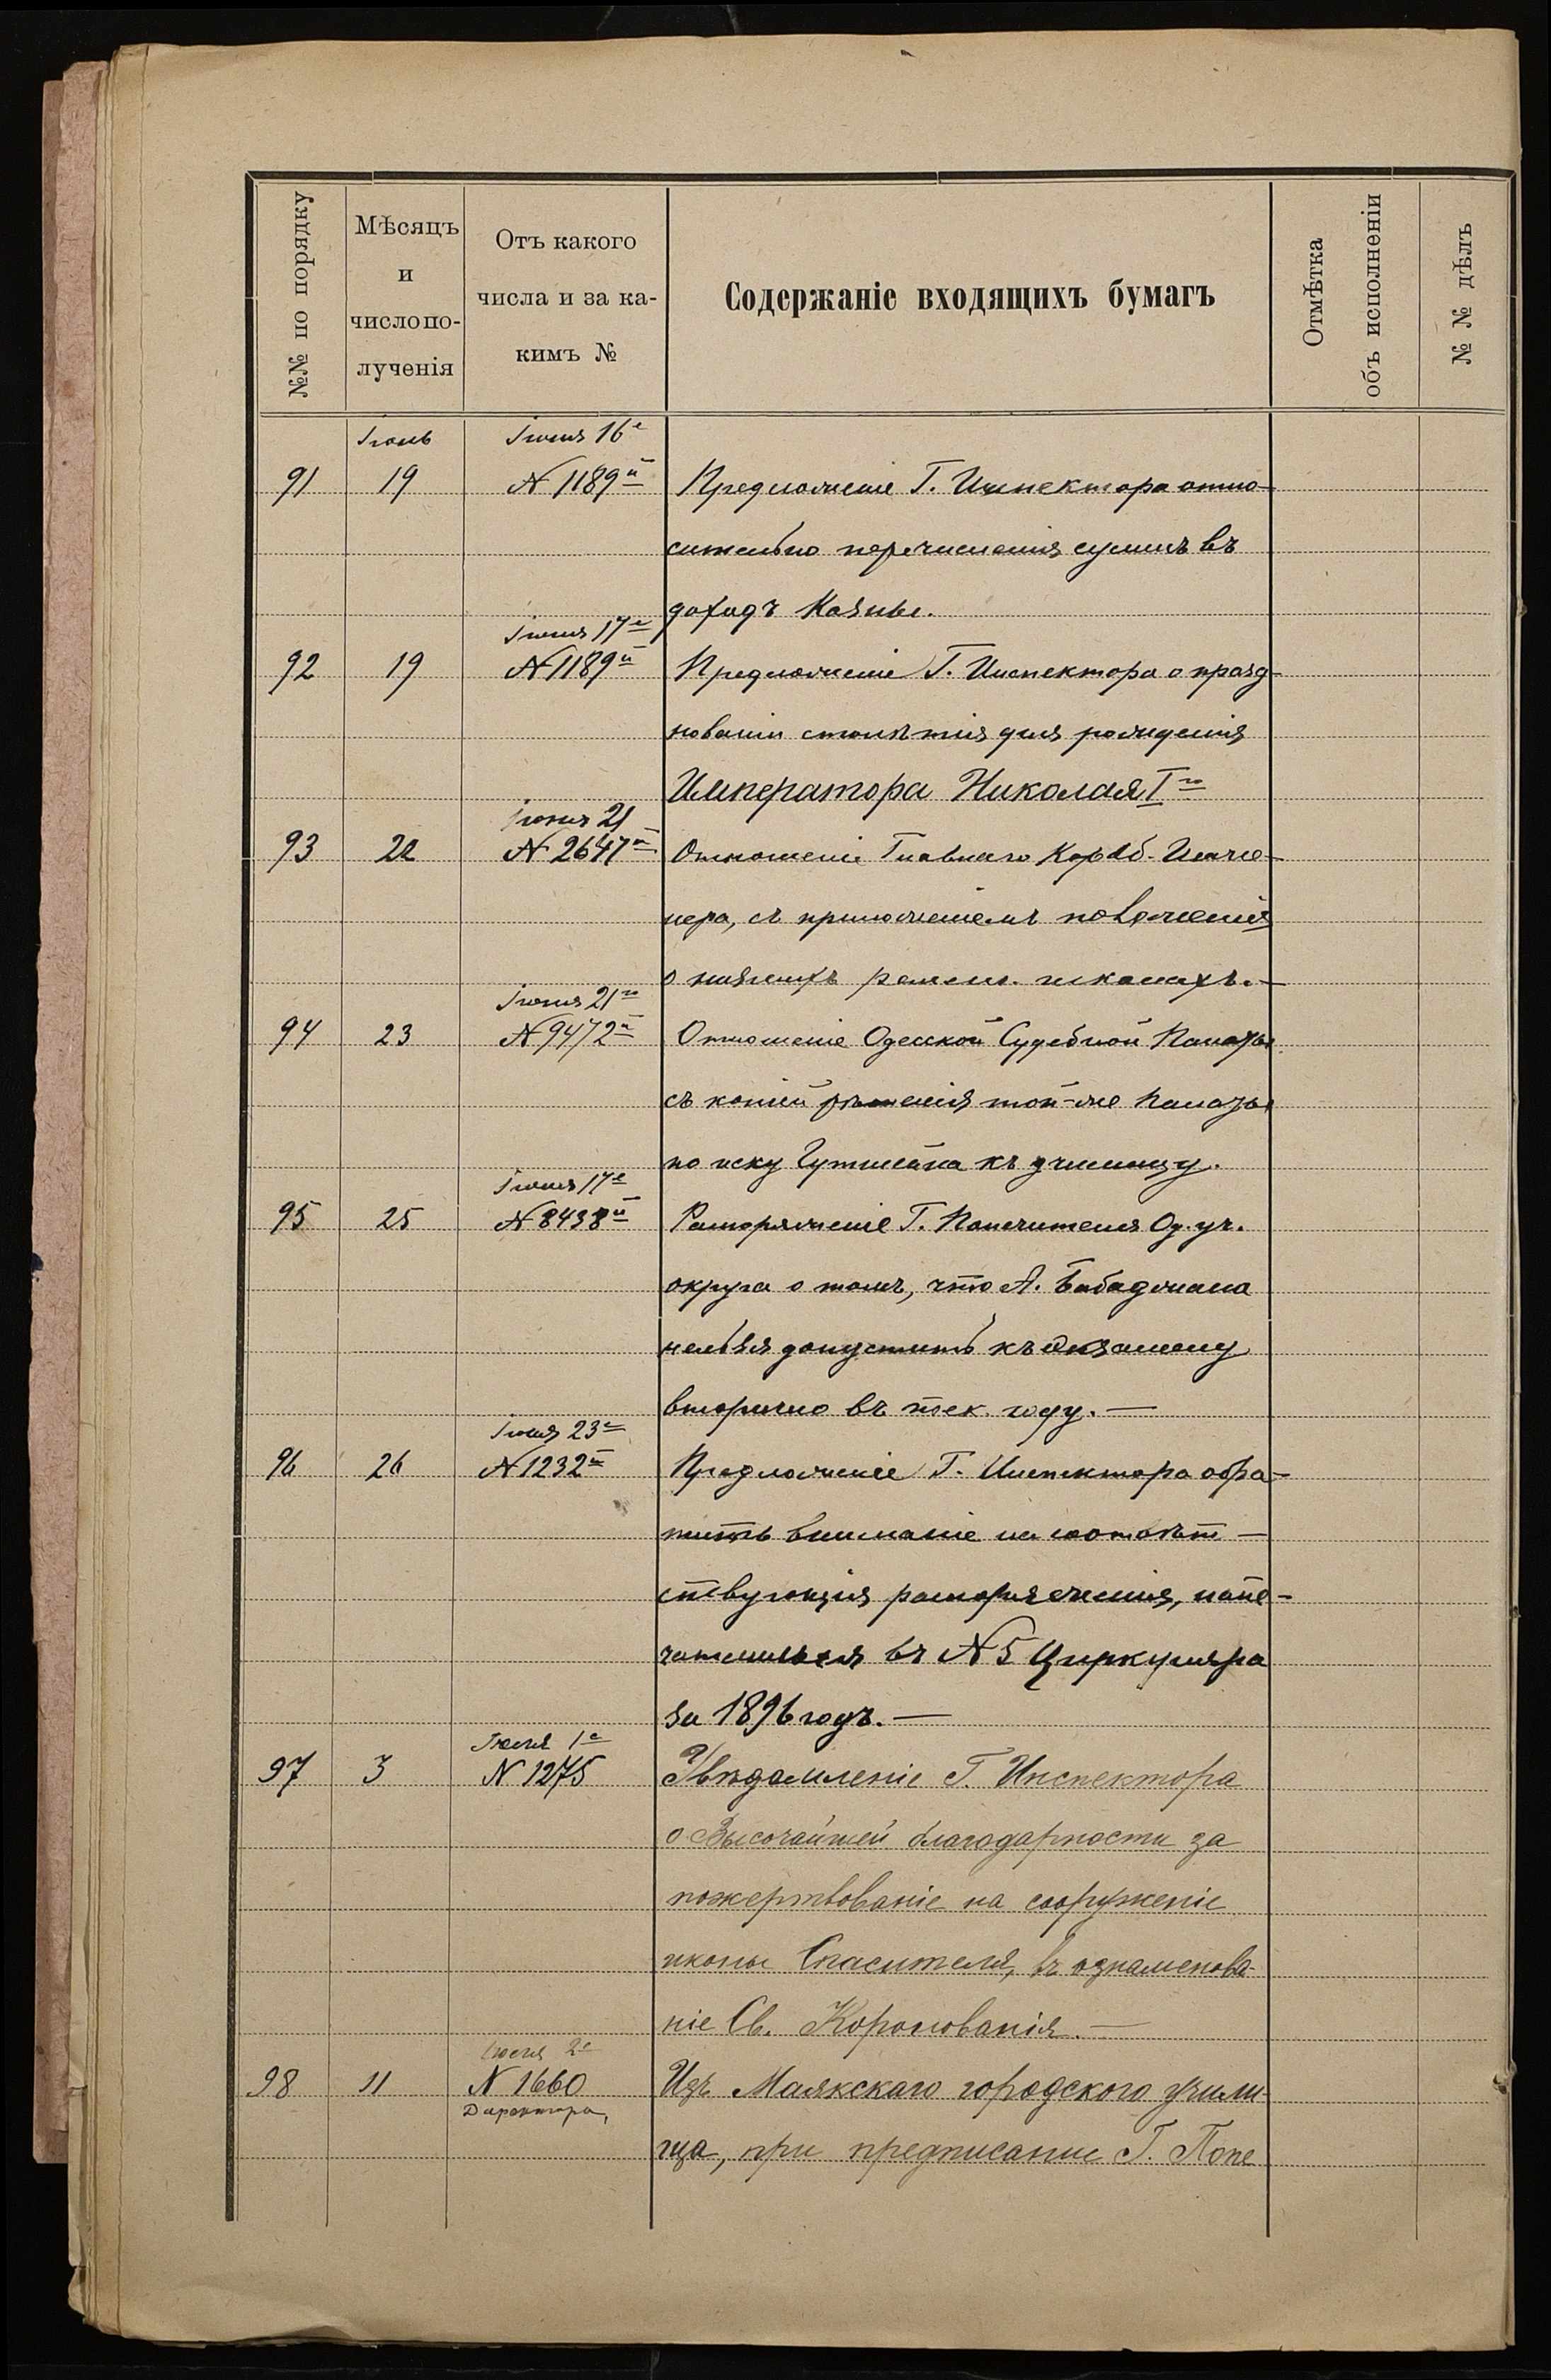 №№ по порядку
Мѣсяцъ
и
число по-
лученія
Отъ какого
числа и за ка-
кимъ №
Содержаніе входящихъ бумагъ
Отмѣтка
объ исполненіи
№ № дѣлъ
Іюнь
Іюня 16е
91 19 N 1189й Предложеніе Г. Инспектора отно-
сительно перечисленія суммъ въ
доходъ Казны.
Іюня 17е
92 19 N 1189й Предложеніе Г. Инспектора о празд-
нованіи столѣтія дня рожденія
Императора Николая Iго
Іюня 21
93 22 N 2647й Отношеніе Главнаго Кораб. Инже-
нера, съ приложеніемъ положенія
о низшихъ ремесл. школахъ.—
Іюня 21го
94 23 N 9472й Отношеніе Одесской Судебной Палаты
съ копіей рѣшенія той-же Палаты
по иску Гутмана къ училищу.
Іюня 17е
95 25 N 8438й Распоряженіе Г. Попечителя Од. уч.
округа о томъ, что А. Бабаджана
нельзя допустить къ экзамену
вторично въ тек. году.—
Іюня 23е
96 26 N 1232й Предложеніе Г. Инспектора обра-
тить вниманіе на соотвѣт-
ствующія распоряженія, напе-
чатанныя въ N 5 Циркуляра
за 1896 годъ.—
Іюля 1е
97 3 N 1275 Увѣдомленіе Г. Инспектора
о Высочайшей благодарности за
пожертвованіе на сооруженіе
иконы Спасителя, въ ознаменова-
ніе Св. Коронованія.—
Іюля 2е
98 11 N 1660 Изъ Маякскаго городского учили-
Директора,
ща, при предписаніе Г. Попе